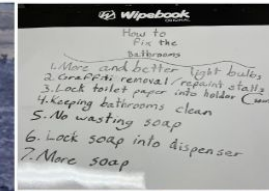 Wipebook
How to
Fix the
Bathrooms
1. More and better light bulbs
2. Graffiti removal/repaint stalls
3. Lock toilet paper into holder
4. Keeping bathrooms clean
5. No wasting soap
6. Lock soap into dispenser
7. More soap